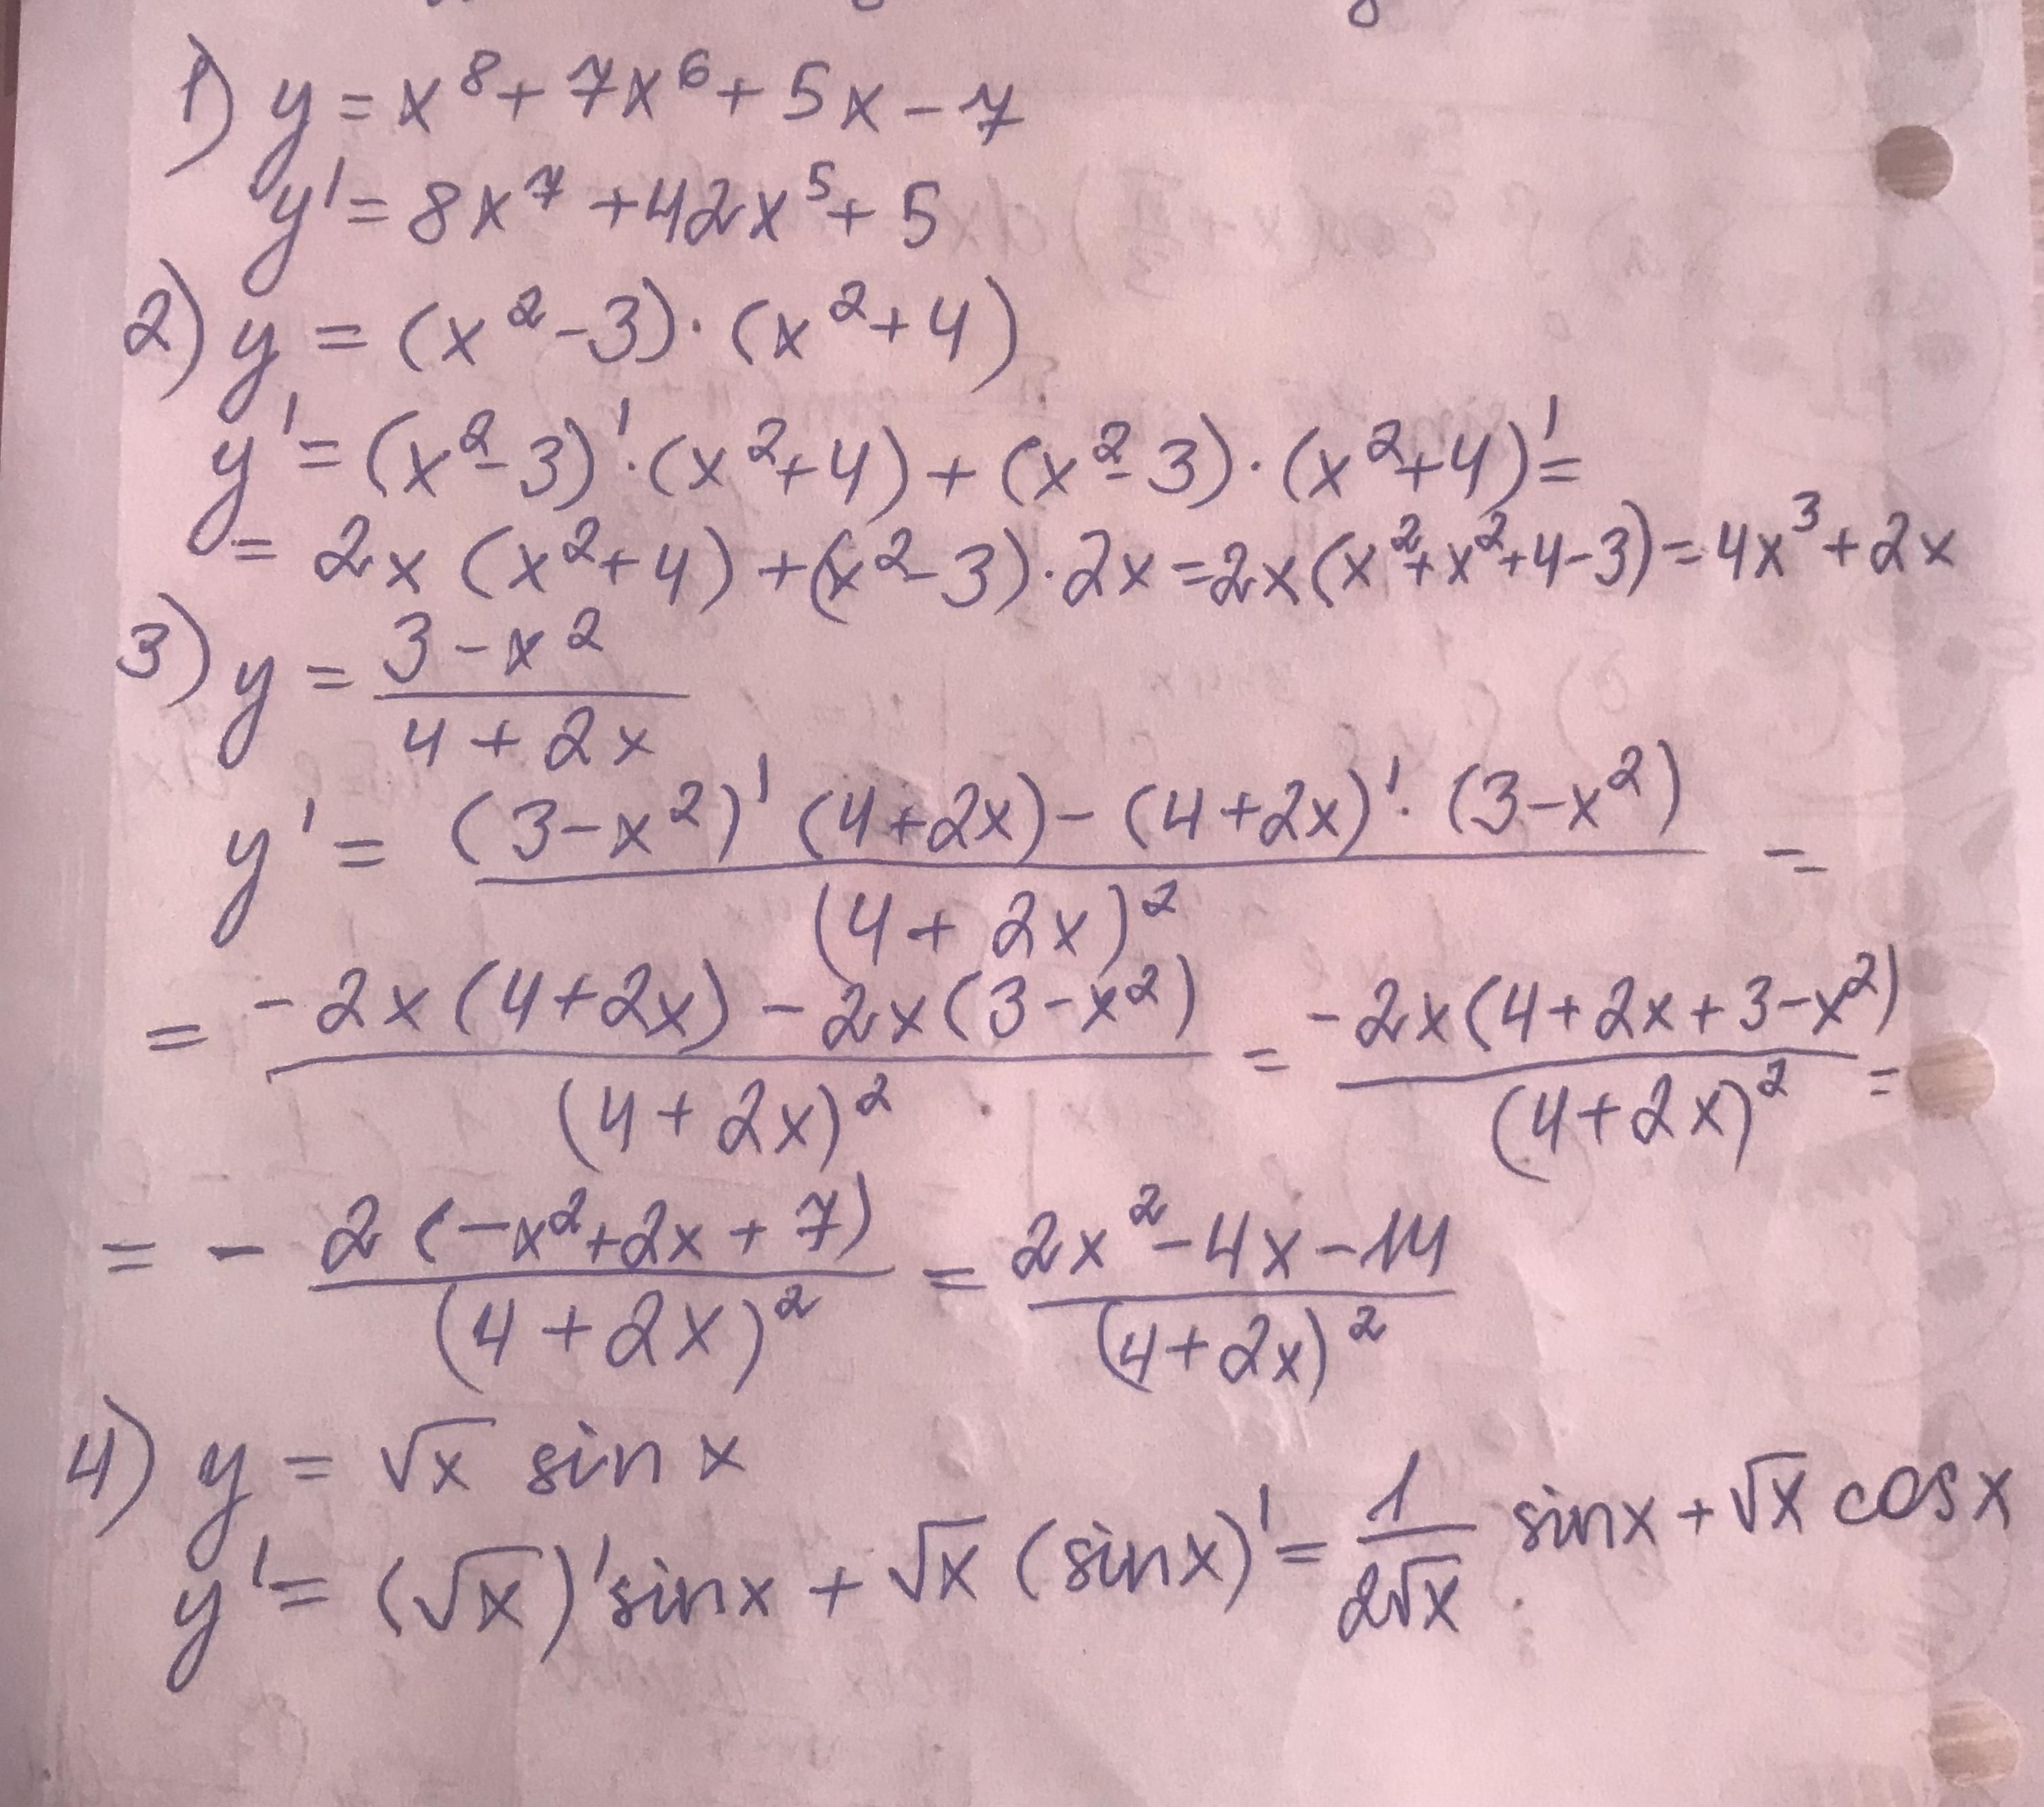 1) y = x⁸ + 7x⁶ + 5x - 7
y' = 8x⁷ + 42x⁵ + 5
2) y = (x² - 3) · (x² + 4)
y' = (x² - 3)' · (x² + 4) + (x² - 3) · (x² + 4)' =
= 2x (x² + 4) + (x² - 3) · 2x = 2x (x² + x² + 4 - 3) = 4x³ + 2x
3) y = (3 - x²) / (4 + 2x)
y' = ((3 - x²)' (4 + 2x) - (4 + 2x)' · (3 - x²)) / (4 + 2x)² =
= (-2x (4 + 2x) - 2x (3 - x²)) / (4 + 2x)² = (-2x (4 + 2x + 3 - x²)) / (4 + 2x)² =
= - (2 (-x² + 2x + 7)) / (4 + 2x)² = (2x² - 4x - 14) / (4 + 2x)²
4) y = √x sin x
y' = (√x)' sin x + √x (sin x)' = 1 / (2√x) sin x + √x cos x